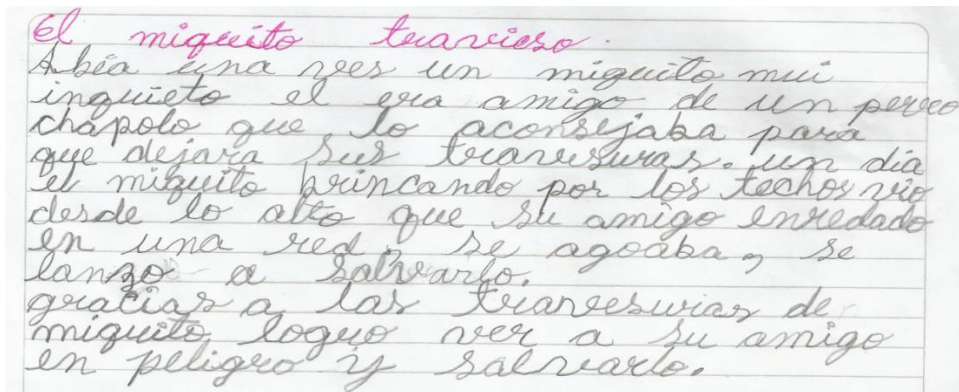 El miquito travieso.
Abia una ves un miquito mui
inquieto el era amigo de un perro
chapolo que lo aconsejaba para
que dejara sus travesuras. un dia
el miquito brincando por los techos vio
desde lo alto que su amigo enredado
en una red, se agoaba, se
lanzo a salvarlo.
gracias a las travesuras de
miquito logro ver a su amigo
en peligro y salvarlo.